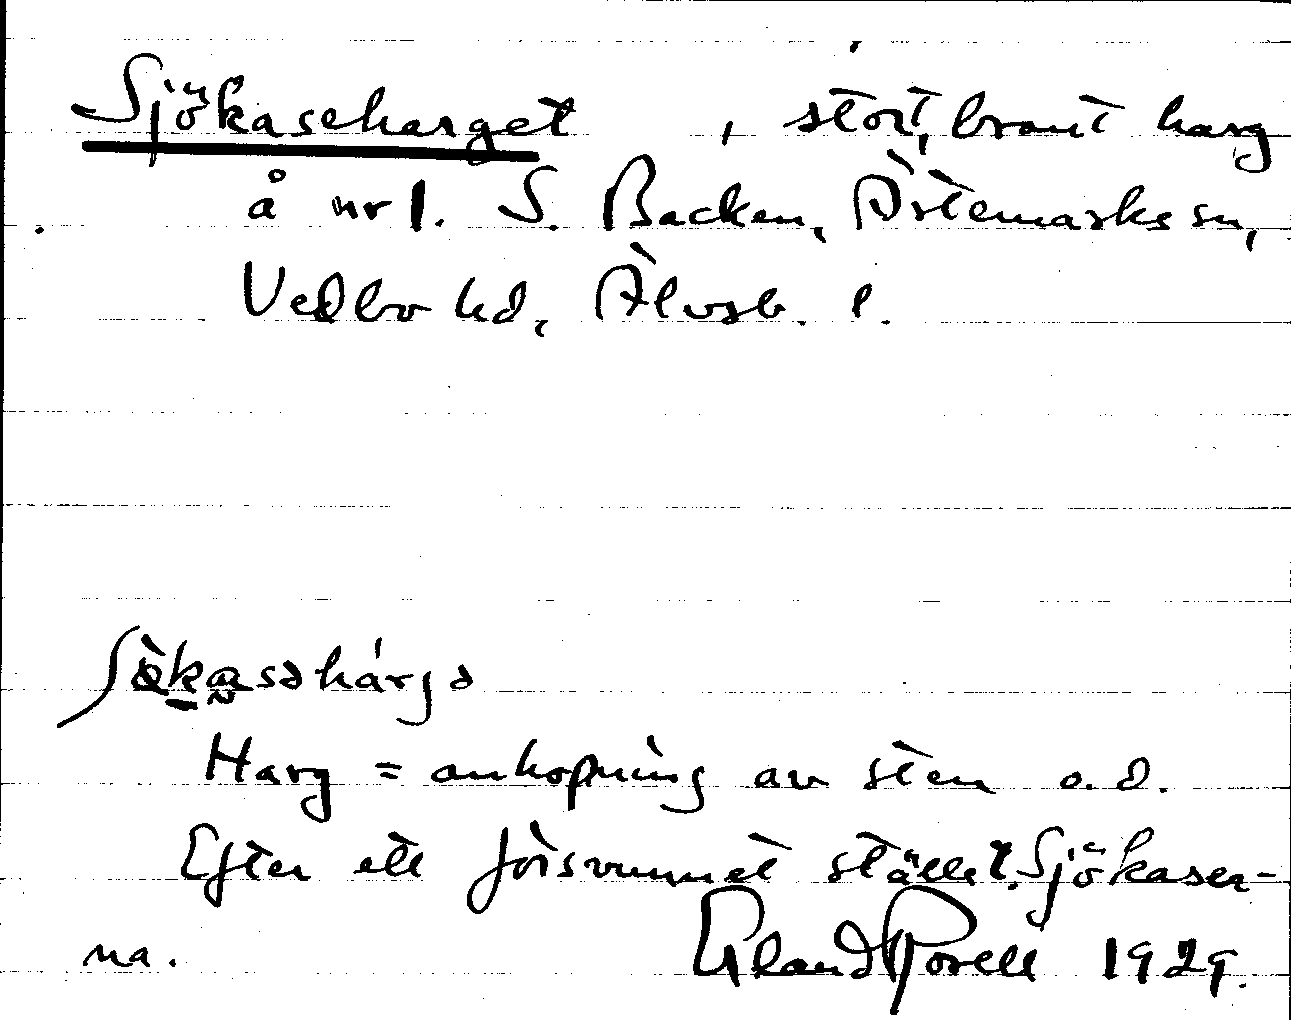 Sjökaseharget , stort, brant harg
å nr 1. S. Backen, Ärtemarks sn,
Vedbo hd, Älvsb. l.
Harg = anhopning av sten o.d.
Efter ett försvunnet ställe, Sjökaser-
na. Erland Rosell 1929.